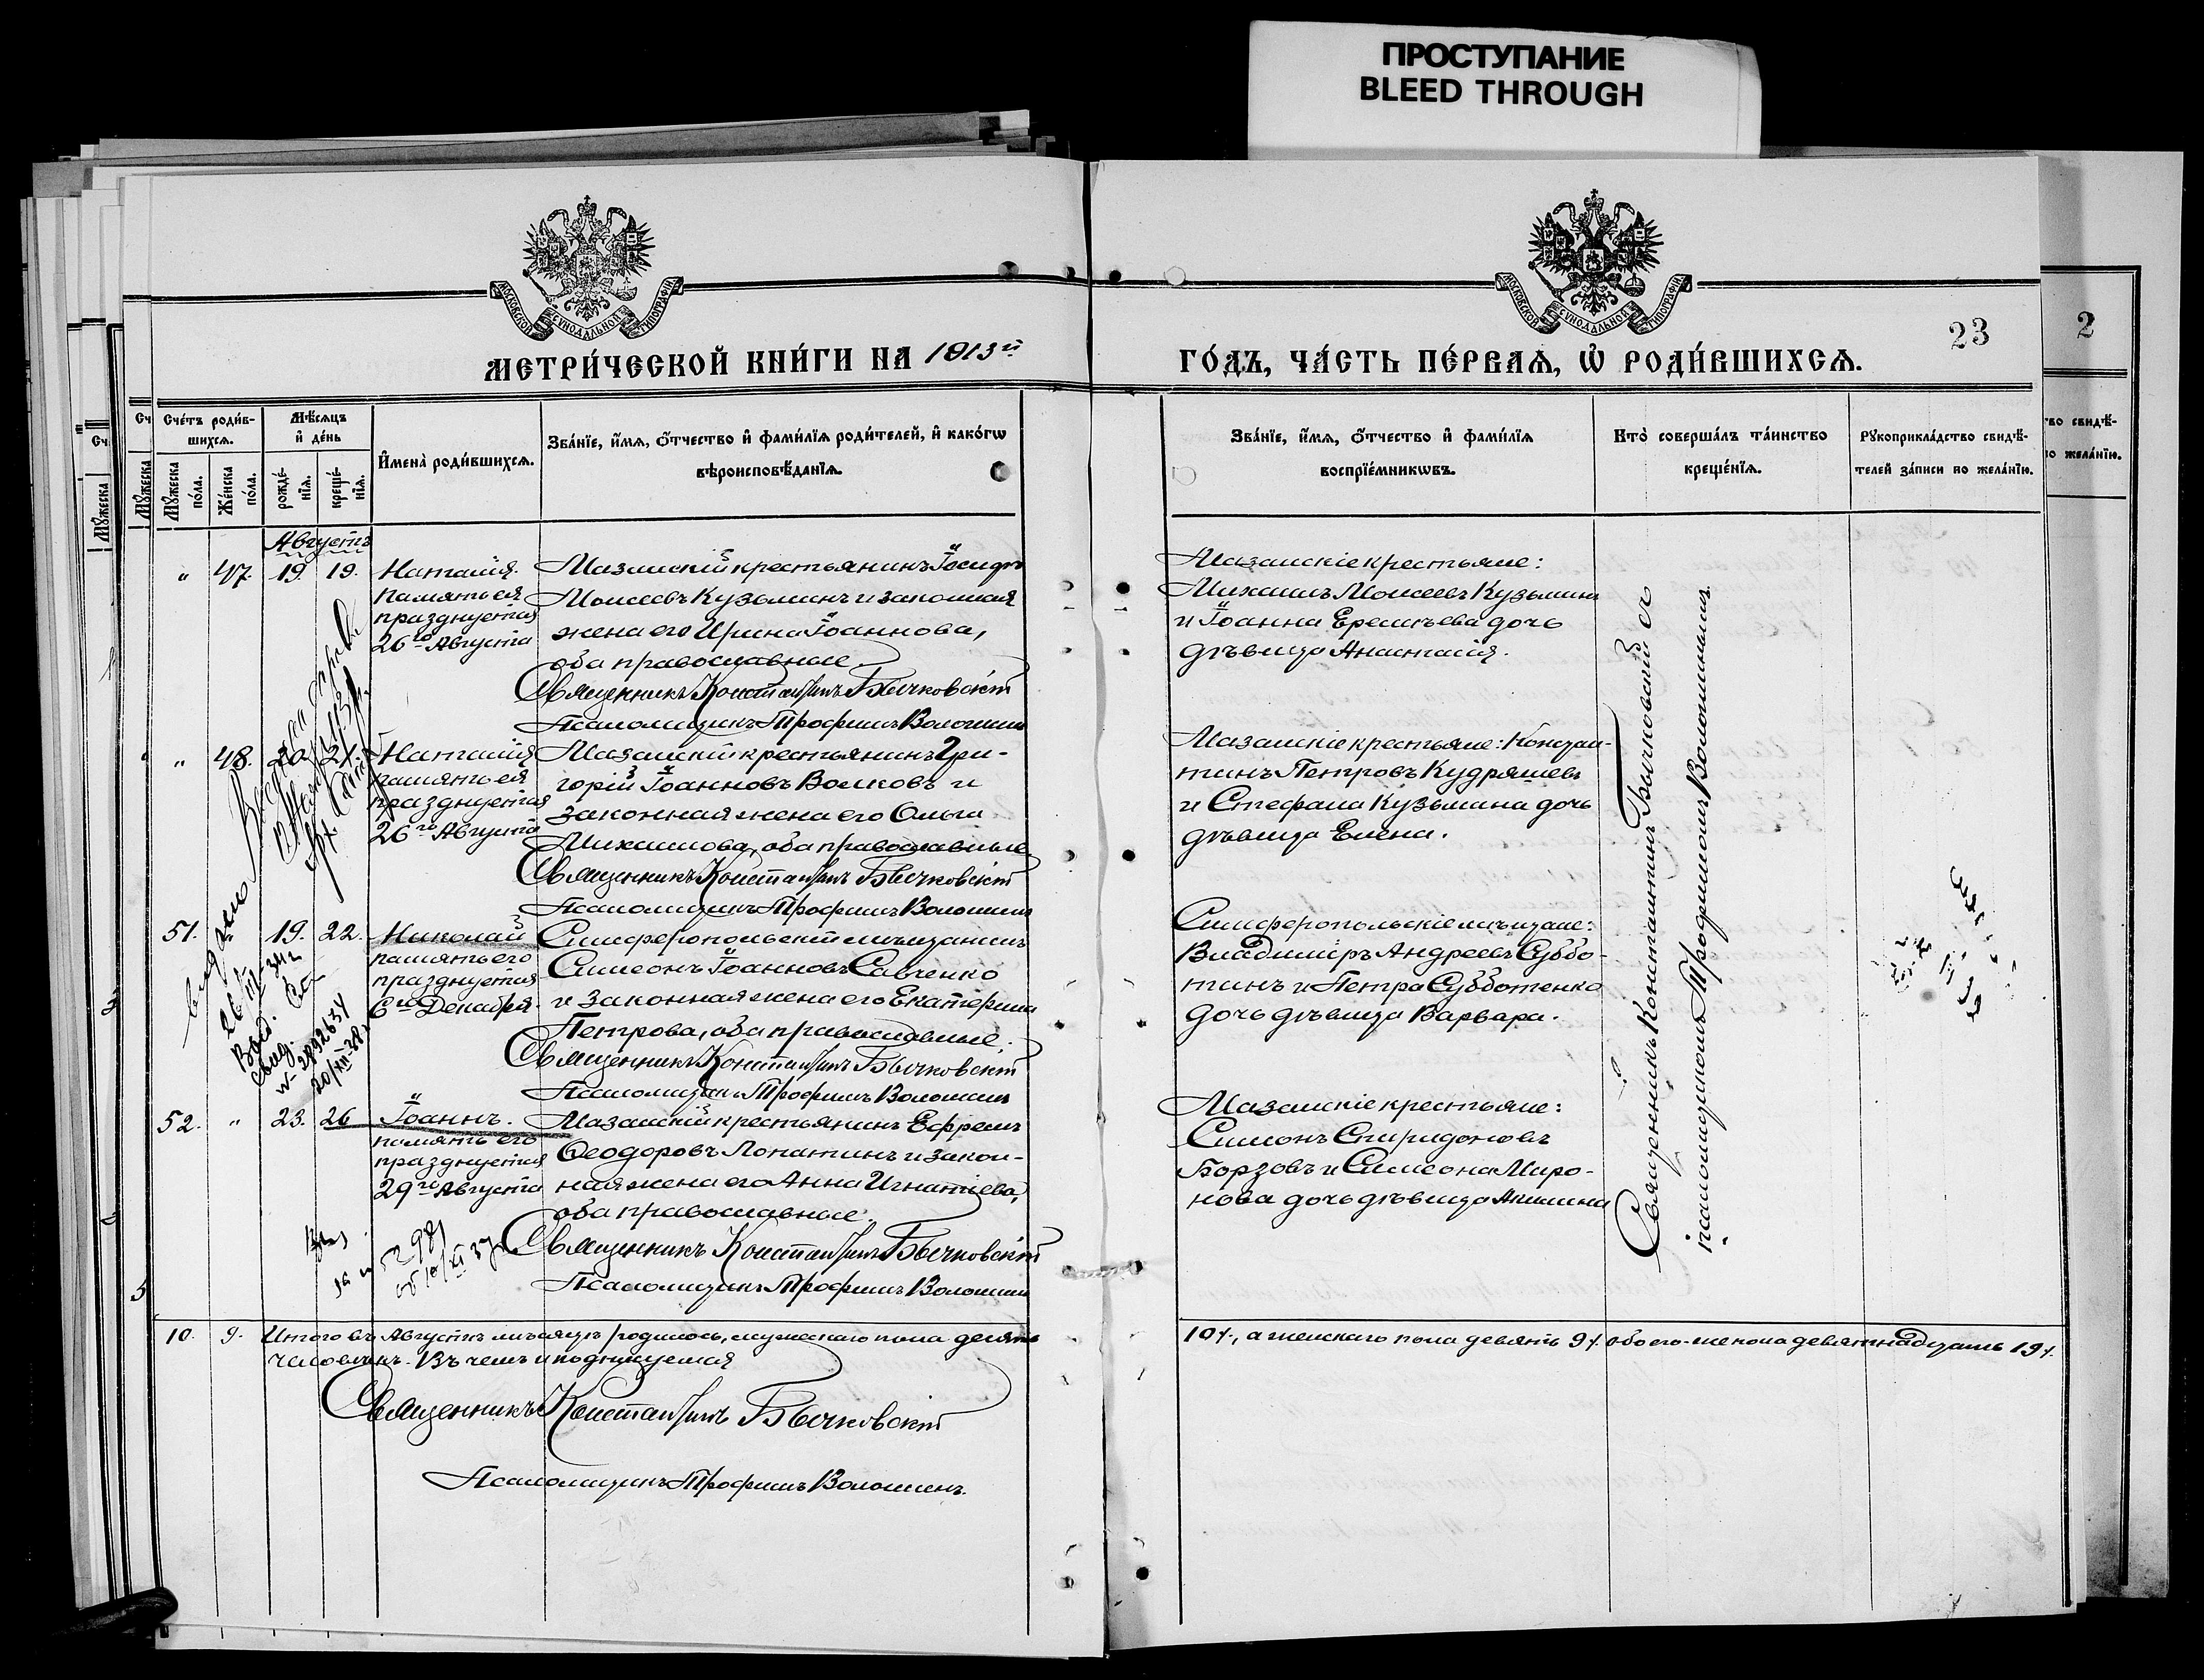 ПРОСТУПАНИЕ
BLEED THROUGH
МОСКОВСКОЙ СѴНОДАЛЬНОЙ ТИПОГРАФІИ
МОСКОВСКОЙ СѴНОДАЛЬНОЙ ТИПОГРАФІИ
МЕТРИ́ЧЕСКОЙ КНИ́ГИ НА 1913й
ГО́ДЪ, ЧА́СТЬ ПЕ́РВАѦ, Ѡ҆ РОДИ́ВШИХСѦ.
23
2
Сче́тъ роди́в-
шихсѧ.
Мѣ́сяцъ
и҆ де́нь
Мꙋ́жеска
по́ла.
Же́нска
по́ла.
рожде́-
нїѧ.
креще́-
нїѧ.
И҆мена̀ роди́вшихсѧ.
Зва́нїе, и҆́мѧ, ѻ҆́тчество и҆ фами́лїѧ роди́телей, и҆ како́гѡ
вѣроисповѣ́данїѧ.
Зва́нїе, и҆́мѧ, ѻ҆́тчество и҆ фами́лїѧ
воспрїе́мникѡвъ.
Кто̀ соверша́лъ та́инство
креще́нїѧ.
Рꙋкоприкла́дство свидѣ́-
телей за́писи по жела́нїю.
Августъ
" 47. 19. 19. Наталія.
память ея
празднуется
26го Августа
Мазанскій крестьянинъ Іосифъ
Моисеевъ Кузьминъ и законная
жена его Ирина Іоаннова,
оба православные.
Священникъ Константинъ Бычковскій
Псаломщикъ Трофимъ Волошинъ
Мазанскіе крестьяне:
Михаилъ Моисеевъ Кузьминъ
и Іоанна Еремѣева дочь
дѣвица Анастасія.
" 48. 20. 21. Наталія
память ея
празднуется
26го Августа
Мазанскій крестьянинъ Гри-
горій Іоанновъ Волковъ и
законная жена его Ольга
Михаилова, оба православные
Священникъ Константинъ Бычковскій
Псаломщикъ Трофимъ Волошинъ
Мазанскіе крестьяне: Констан-
тинъ Петровъ Кудряшевъ
и Стефана Кузьмина дочь
дѣвица Елена.
51. 19. 22. Николай
память его
празднуется
6го Декабря.
Симферопольскій мѣщанинъ
Симеонъ Іоанновъ Савченко
и законная жена его Екатерина
Петрова, оба православные.
Священникъ Константинъ Бычковскій
Псаломщикъ Трофимъ Волошинъ
Симферопольскіе мѣщане:
Владиміръ Андреевъ Суббо-
тинъ и Петра Субботенко
дочь дѣвица Варвара.
52. " 23. 26 Іоаннъ.
память его
празднуется
29го Августа
Мазанскій крестьянинъ Ефремъ
Ѳеодоровъ Лопатинъ и закон-
ная жена его Анна Игнатіева,
оба православные.
Священникъ Константинъ Бычковскій
Псаломщикъ Трофимъ Волошинъ
Мазанскіе крестьяне:
Симонъ Спиридоновъ
Борзовъ и Симеона Миро-
нова дочь дѣвица Акилина
Священникъ Константинъ Бычковскій съ
псаломщикомъ Трофимомъ Волошинымъ.
10. 9. Итого въ Августѣ мѣсяцѣ родилось, мужескаго пола десять
10, а женскаго пола девять 9 обоего-же пола девятнадцать 19.
человѣкъ. Въ чемъ и подпишемся
Священникъ Константинъ Бычковскій
Псаломщикъ Трофимъ Волошинъ.